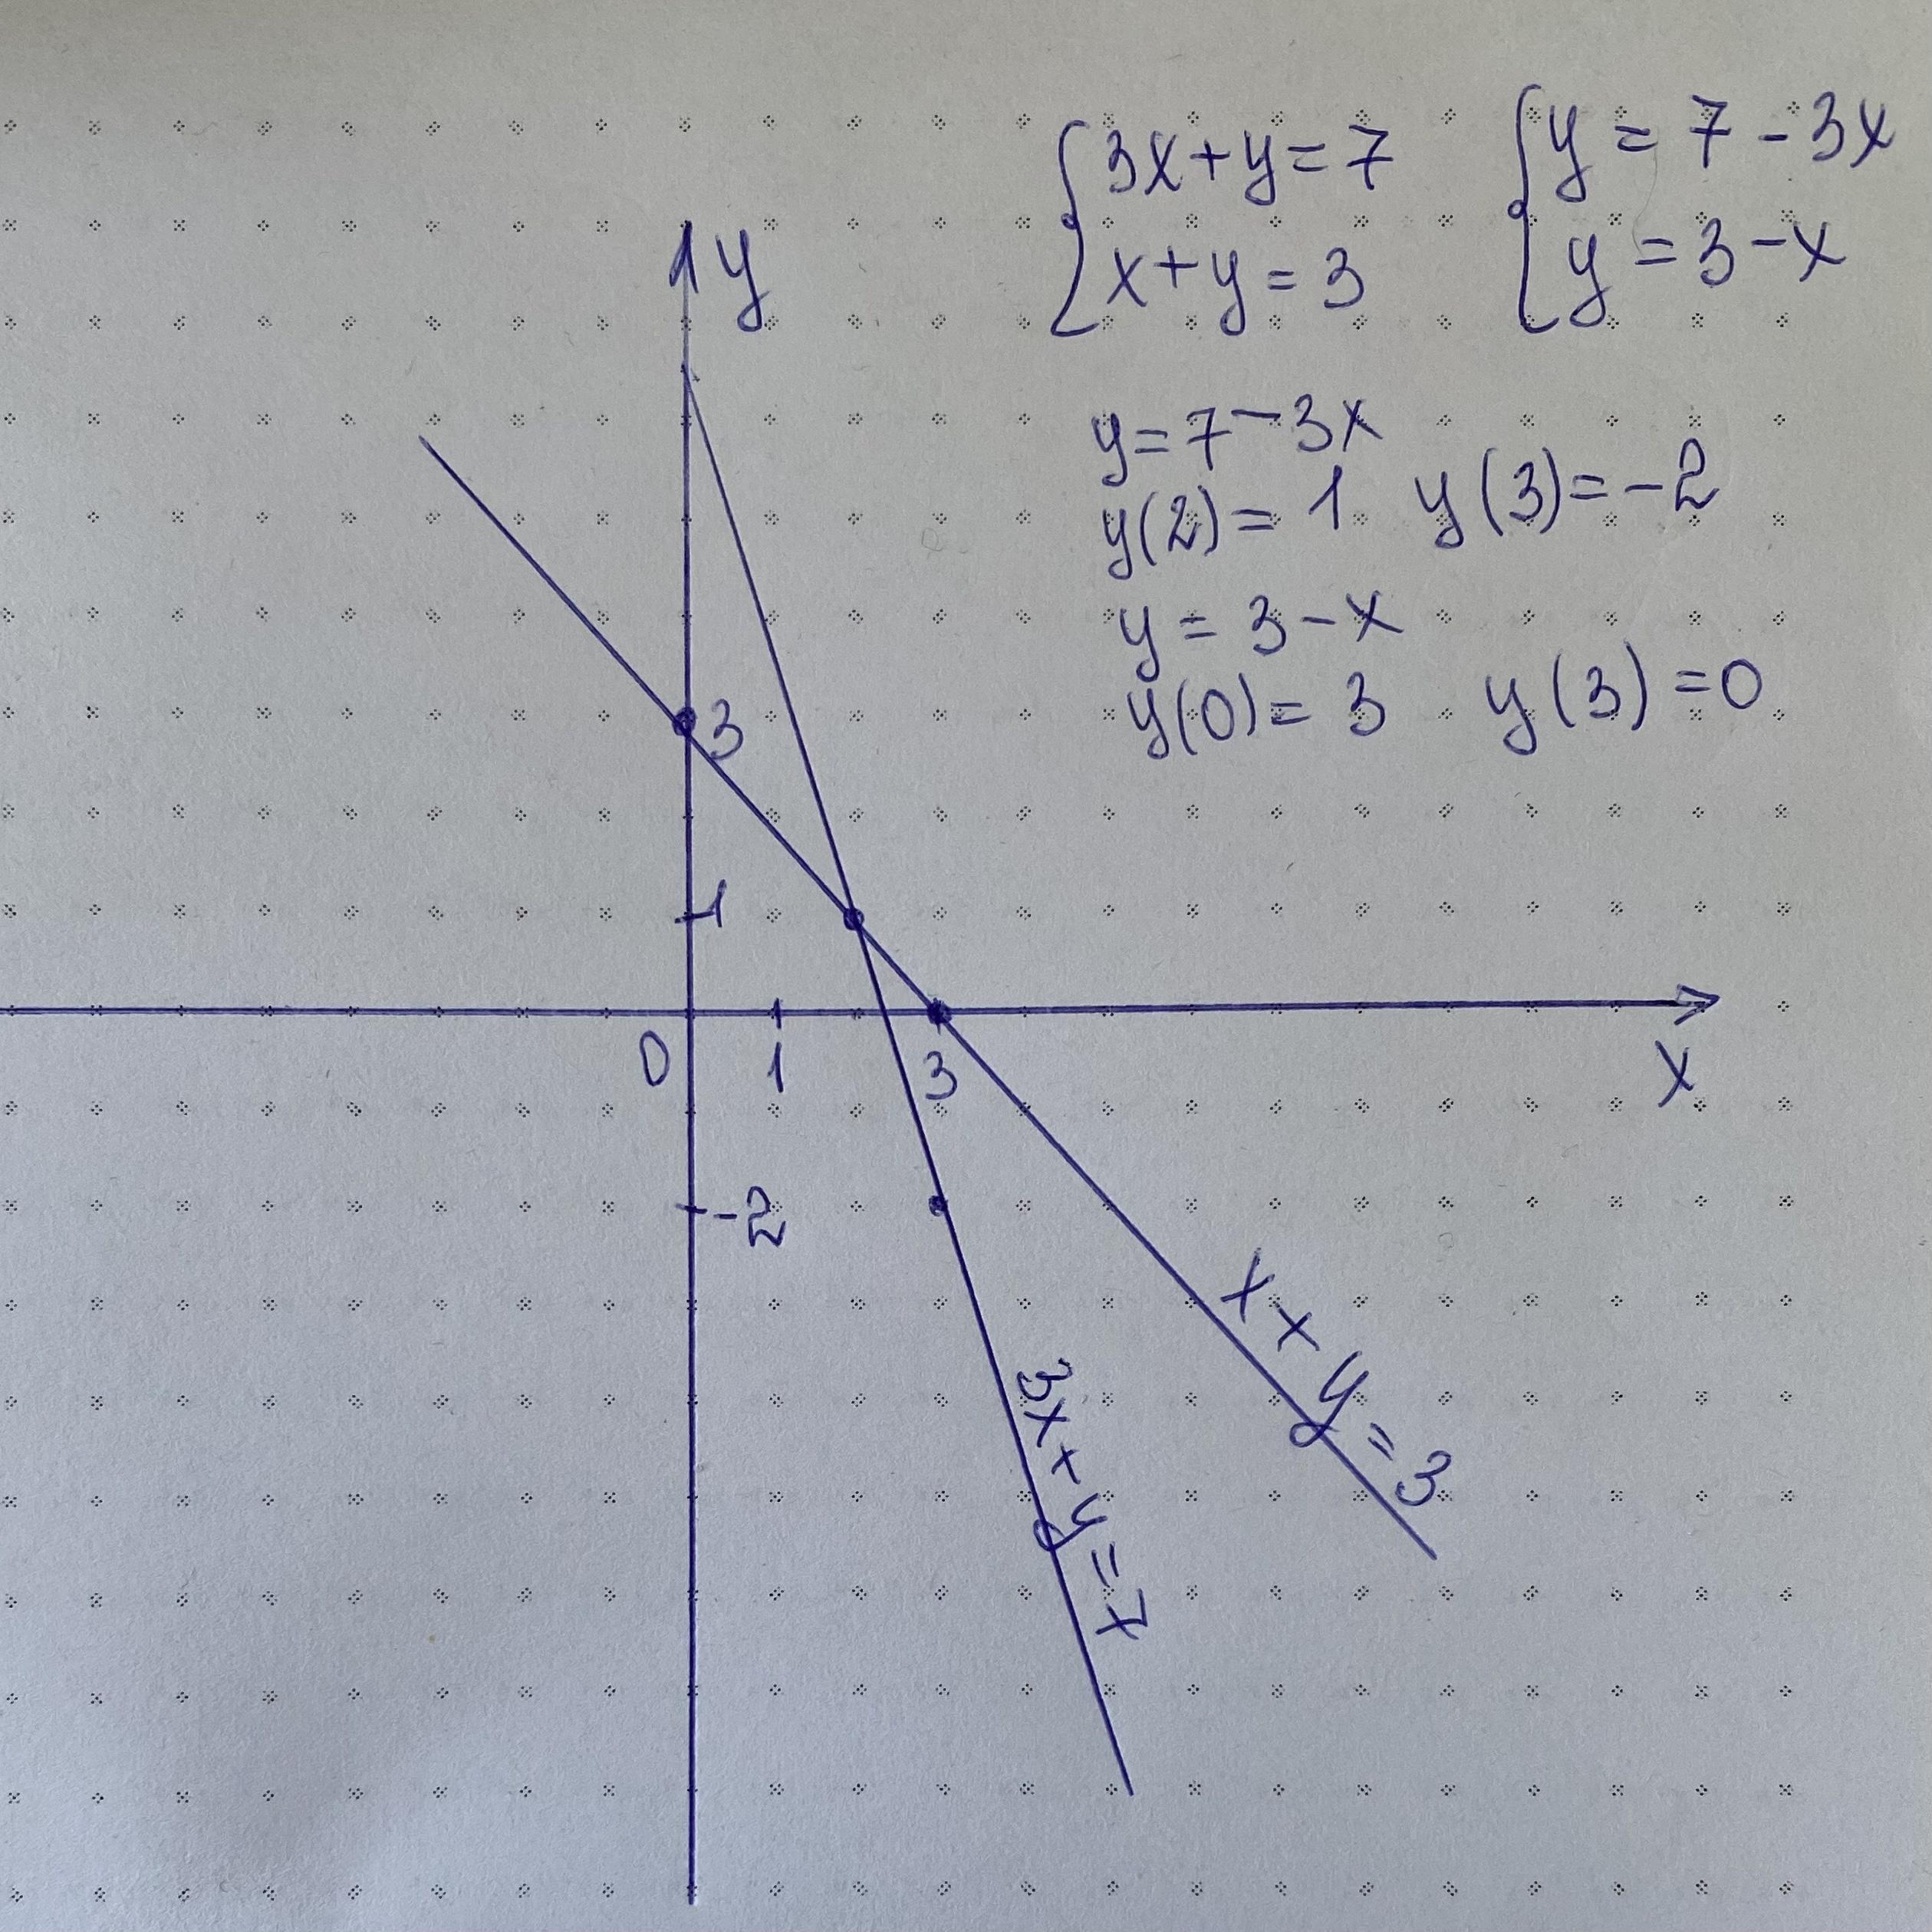 {3x+y=7
x+y=3
{y=7-3x
y=3-x
y=7-3x
y(2)=1 y(3)=-2
y=3-x
y(0)=3 y(3)=0
y
3
1
0
1
3
x
-2
x+y=3
3x+y=7